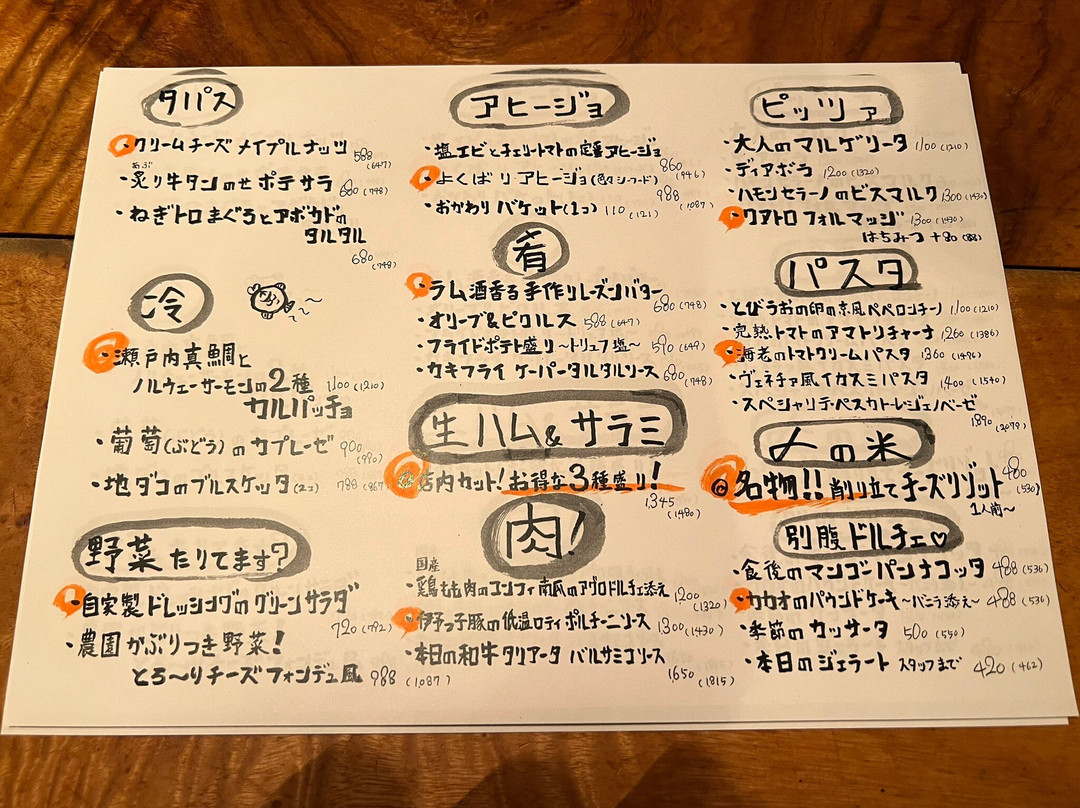 タパス
・クリームチーズ メイプルナッツ 588(647)
あぶ
・炙り牛タンのせポテサラ 680(748)
・ねぎトロまぐろとアボカドの
タルタル
680(748)
冷
・瀬戸内真鯛と
ノルウェーサーモンの2種 1100(1210)
カルパッチョ
・葡萄(ぶどう)のカプレーゼ 900(990)
・地ダコのブルスケッタ(2コ) 788(867
野菜たりてます?
・自家製ドレッシングのグリーンサラダ
720(792)
・農園かぶりつき野菜!
とろ〜りチーズフォンデュ風 988(1087)
アヒージョ
・塩エビとチェリートマトの定番アヒージョ
860(946)
・よくばりアヒージョ(色々シーフード)
988(1087)
・おかわりバケット(1コ) 110(121)
肴
・ラム酒香る手作りレーズンバター
680(748)
・オリーブ&ピクルス 588(647)
・フライドポテト盛り〜トリュフ塩〜 590(649)
・カキフライ ケーパータルタルソース 680(748)
生ハム&サラミ
店内カット!お得な3種盛り!
1,345(1480)
肉!
国産
・鶏もも肉のコンフィ 南瓜のアグロドルチェ添え 1200(1320)
・伊予っ子豚の低温ロティ ポルチーニソース 1300(1430)
・本日の和牛タリアータ バルサミコソース
1650(1815)
ピッツァ
・大人のマルゲリータ 1100(1210)
・ディアボラ 1200(1320)
・ハモンセラーノのビスマルク 1300(1430)
・クアトロフォルマッジ 1300(1430)
はちみつ+80(88)
パスタ
・とびうおの卵の京風ペペロンチーノ 1100(1210)
・完熟トマトのアマトリチャーナ 1260(1386)
・海老のトマトクリームパスタ 1360(1496)
・ヴェネチァ風イカスミパスタ 1,400(1540)
・スペシャリテ・ペスカトーレジェノベーゼ
1890(2079)
〆の米
◎名物!!削り立てチーズリゾット 480(530)
1人前〜
別腹ドルチェ♡
・食後のマンゴーパンナコッタ 488(536)
・カカオのパウンドケーキ〜バニラ添え〜 488(536)
・季節のカッサータ 500(550)
・本日のジェラート スタッフまで 420(462)